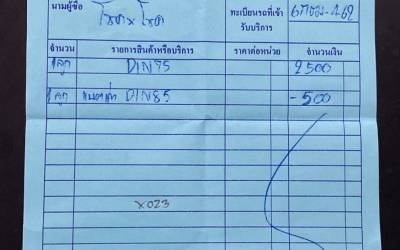 นามผู้ซื้อ โชค x โชค ทะเบียนรถที่เข้ารับบริการ
จำนวน รายการสินค้าหรือบริการ ราคาต่อหน่วย จำนวนเงิน
1ลูก DIN75 2500
1ลูก แบตเก่า DIN85 -500
x023